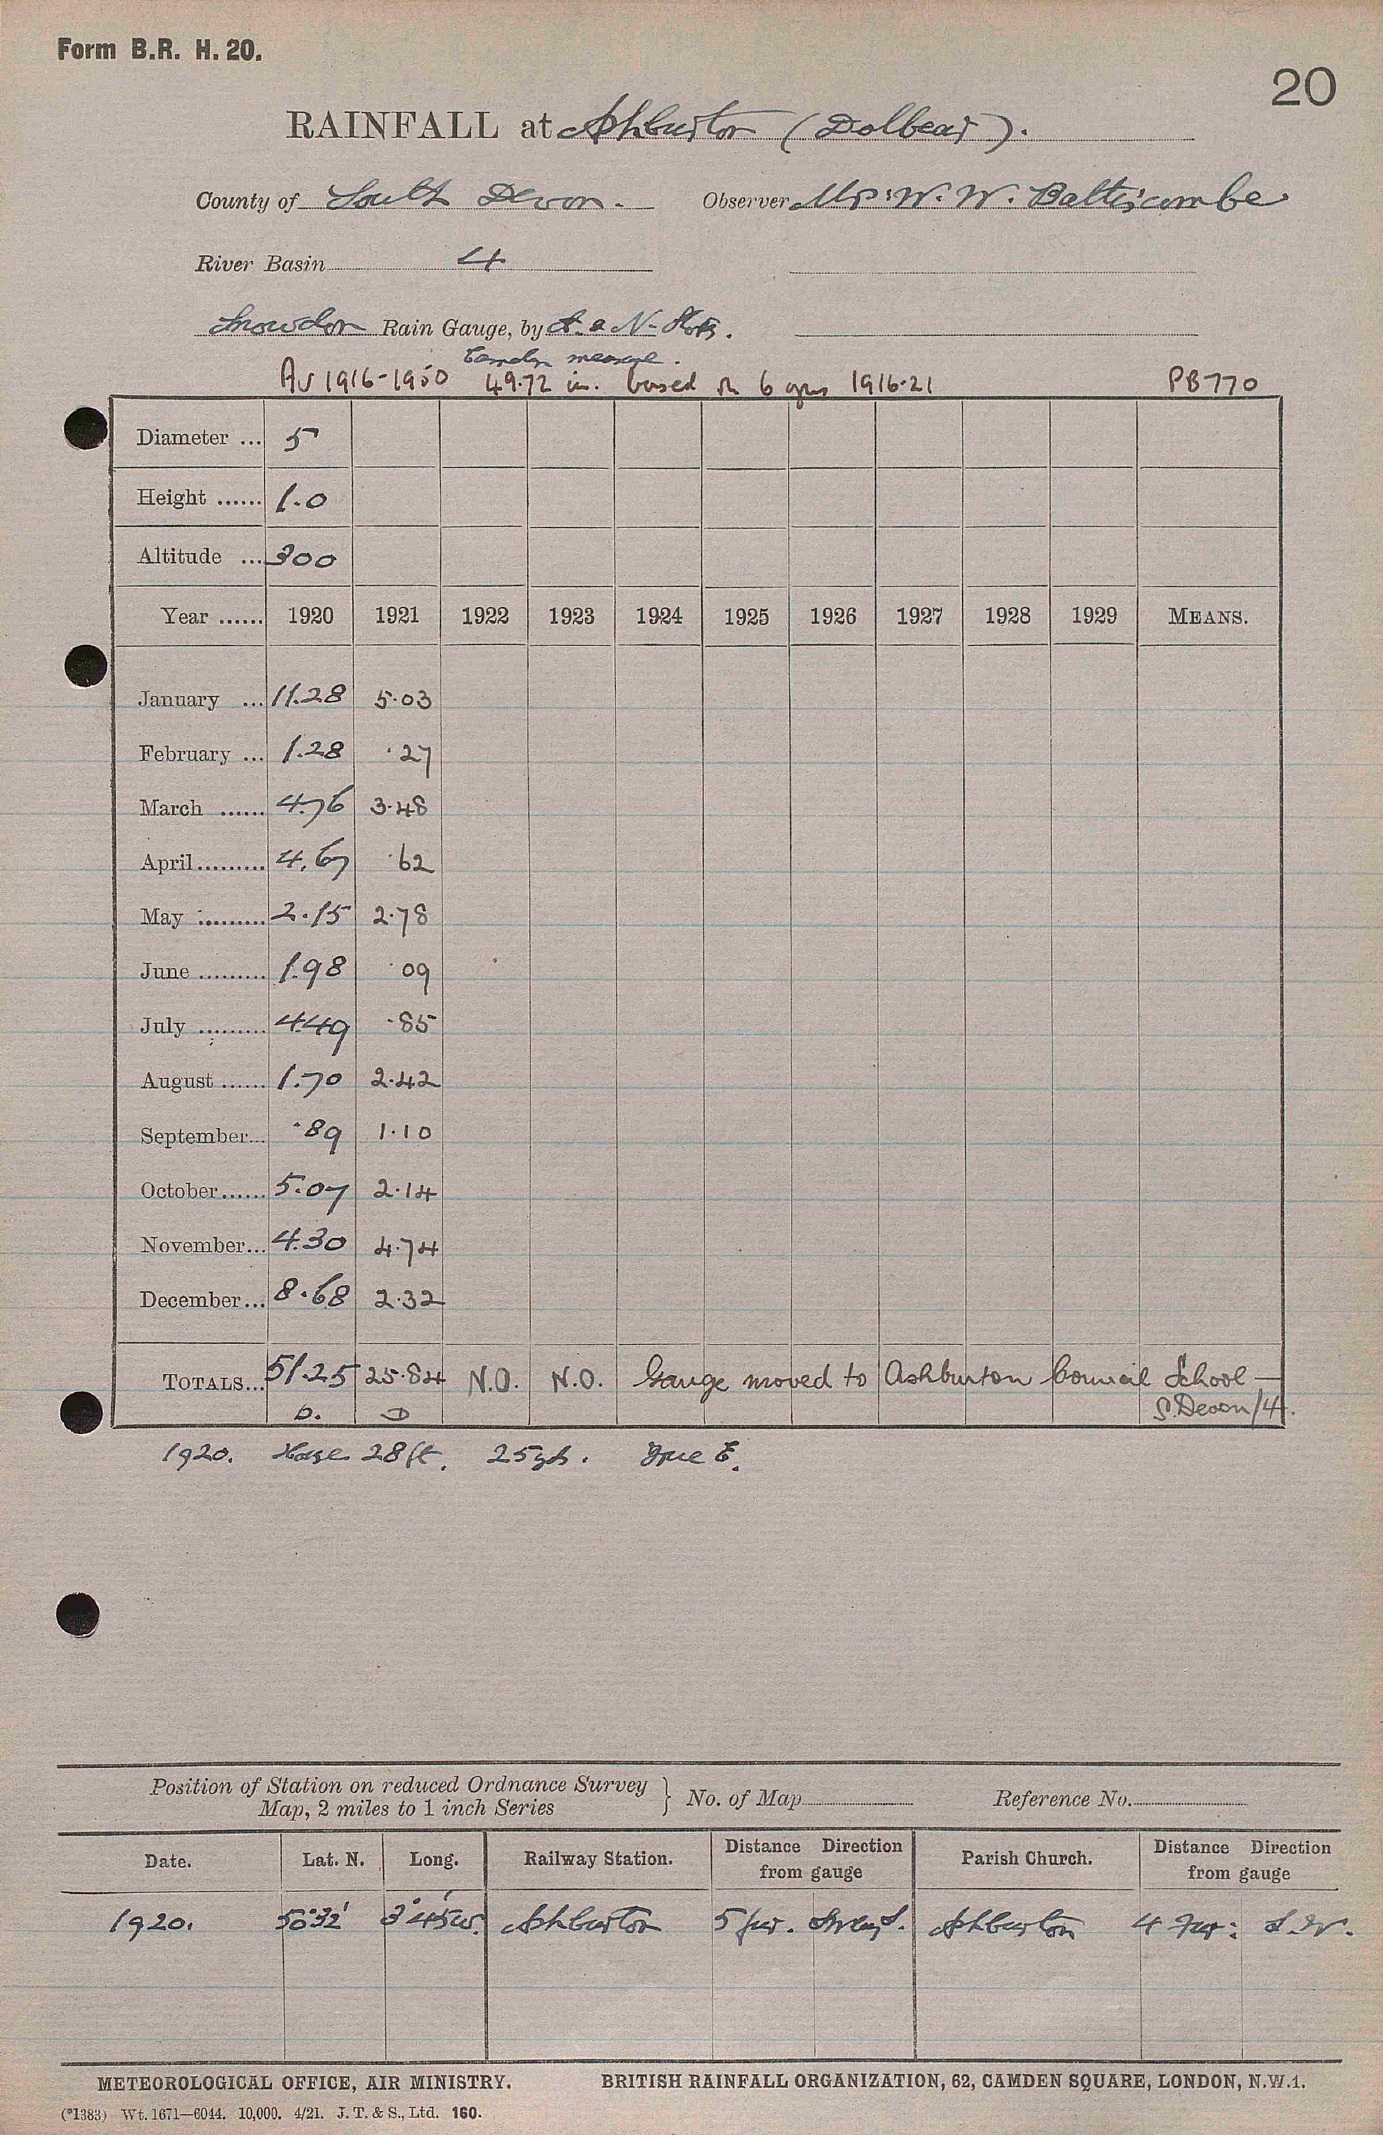 Form B.R. H. 20.
20
RAINFALL at Ashburton (Dolbear).
County of South Devon. Observer Mr: W. W. Battiscombe
River Basin 4
Snowdon Rain Gauge, by A. & N. Stores.
Camden measure.
Av 1916-1950 49.72 in. based on 6 yrs 1916-21 PB770
Diameter ... 5
Height ...... 1.0
Altitude ... 300
Year ...... 1920 1921 1922 1923 1924 1925 1926 1927 1928 1929 MEANS.
January ... 11.28 5.03
February ... 1.28 .27
March ...... 4.76 3.48
April ......... 4.67 .62
May ......... 2.15 2.78
June ......... 1.98 .09
July ......... 4.49 .85
August ...... 1.70 2.42
September... .89 1.10
October...... 5.07 2.14
November... 4.30 4.74
December... 8.68 2.32
TOTALS... 51.25 25.84 N.O. N.O. Gauge moved to Ashburton Council School —
D. D S.Devon/4.
1920. House 28 ft. 25 yds. True E.
Position of Station on reduced Ordnance Survey
Map, 2 miles to 1 inch Series } No. of Map Reference No.
Date. Lat. N. Long. Railway Station. Distance Direction from gauge Parish Church. Distance Direction from gauge
1920. 50°32' 3°45'W. Ashburton 5 fur. Ashburton 4 Fur: S.W.
METEOROLOGICAL OFFICE, AIR MINISTRY. BRITISH RAINFALL ORGANIZATION, 62, CAMDEN SQUARE, LONDON, N.W.1.
(*1383) Wt. 1671—6044. 10,000. 4/21. J. T. & S., Ltd. 160.